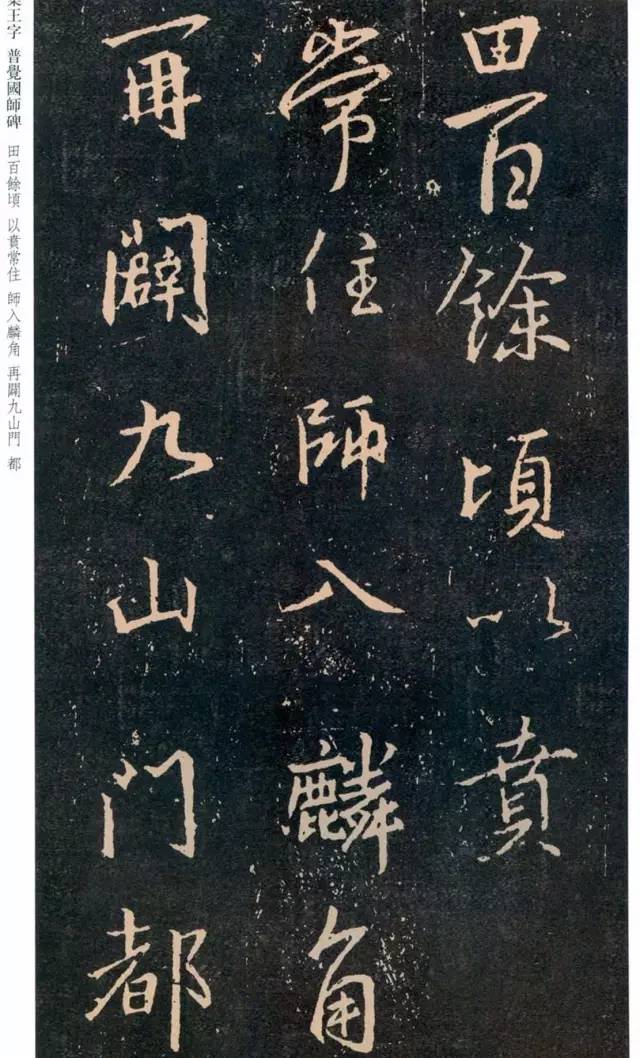 田百餘頃以賁
常住師入麟角
再闢九山门都
集王字 普覺國師碑 田百餘頃 以賁常住 師入麟角 再闢九山門 都